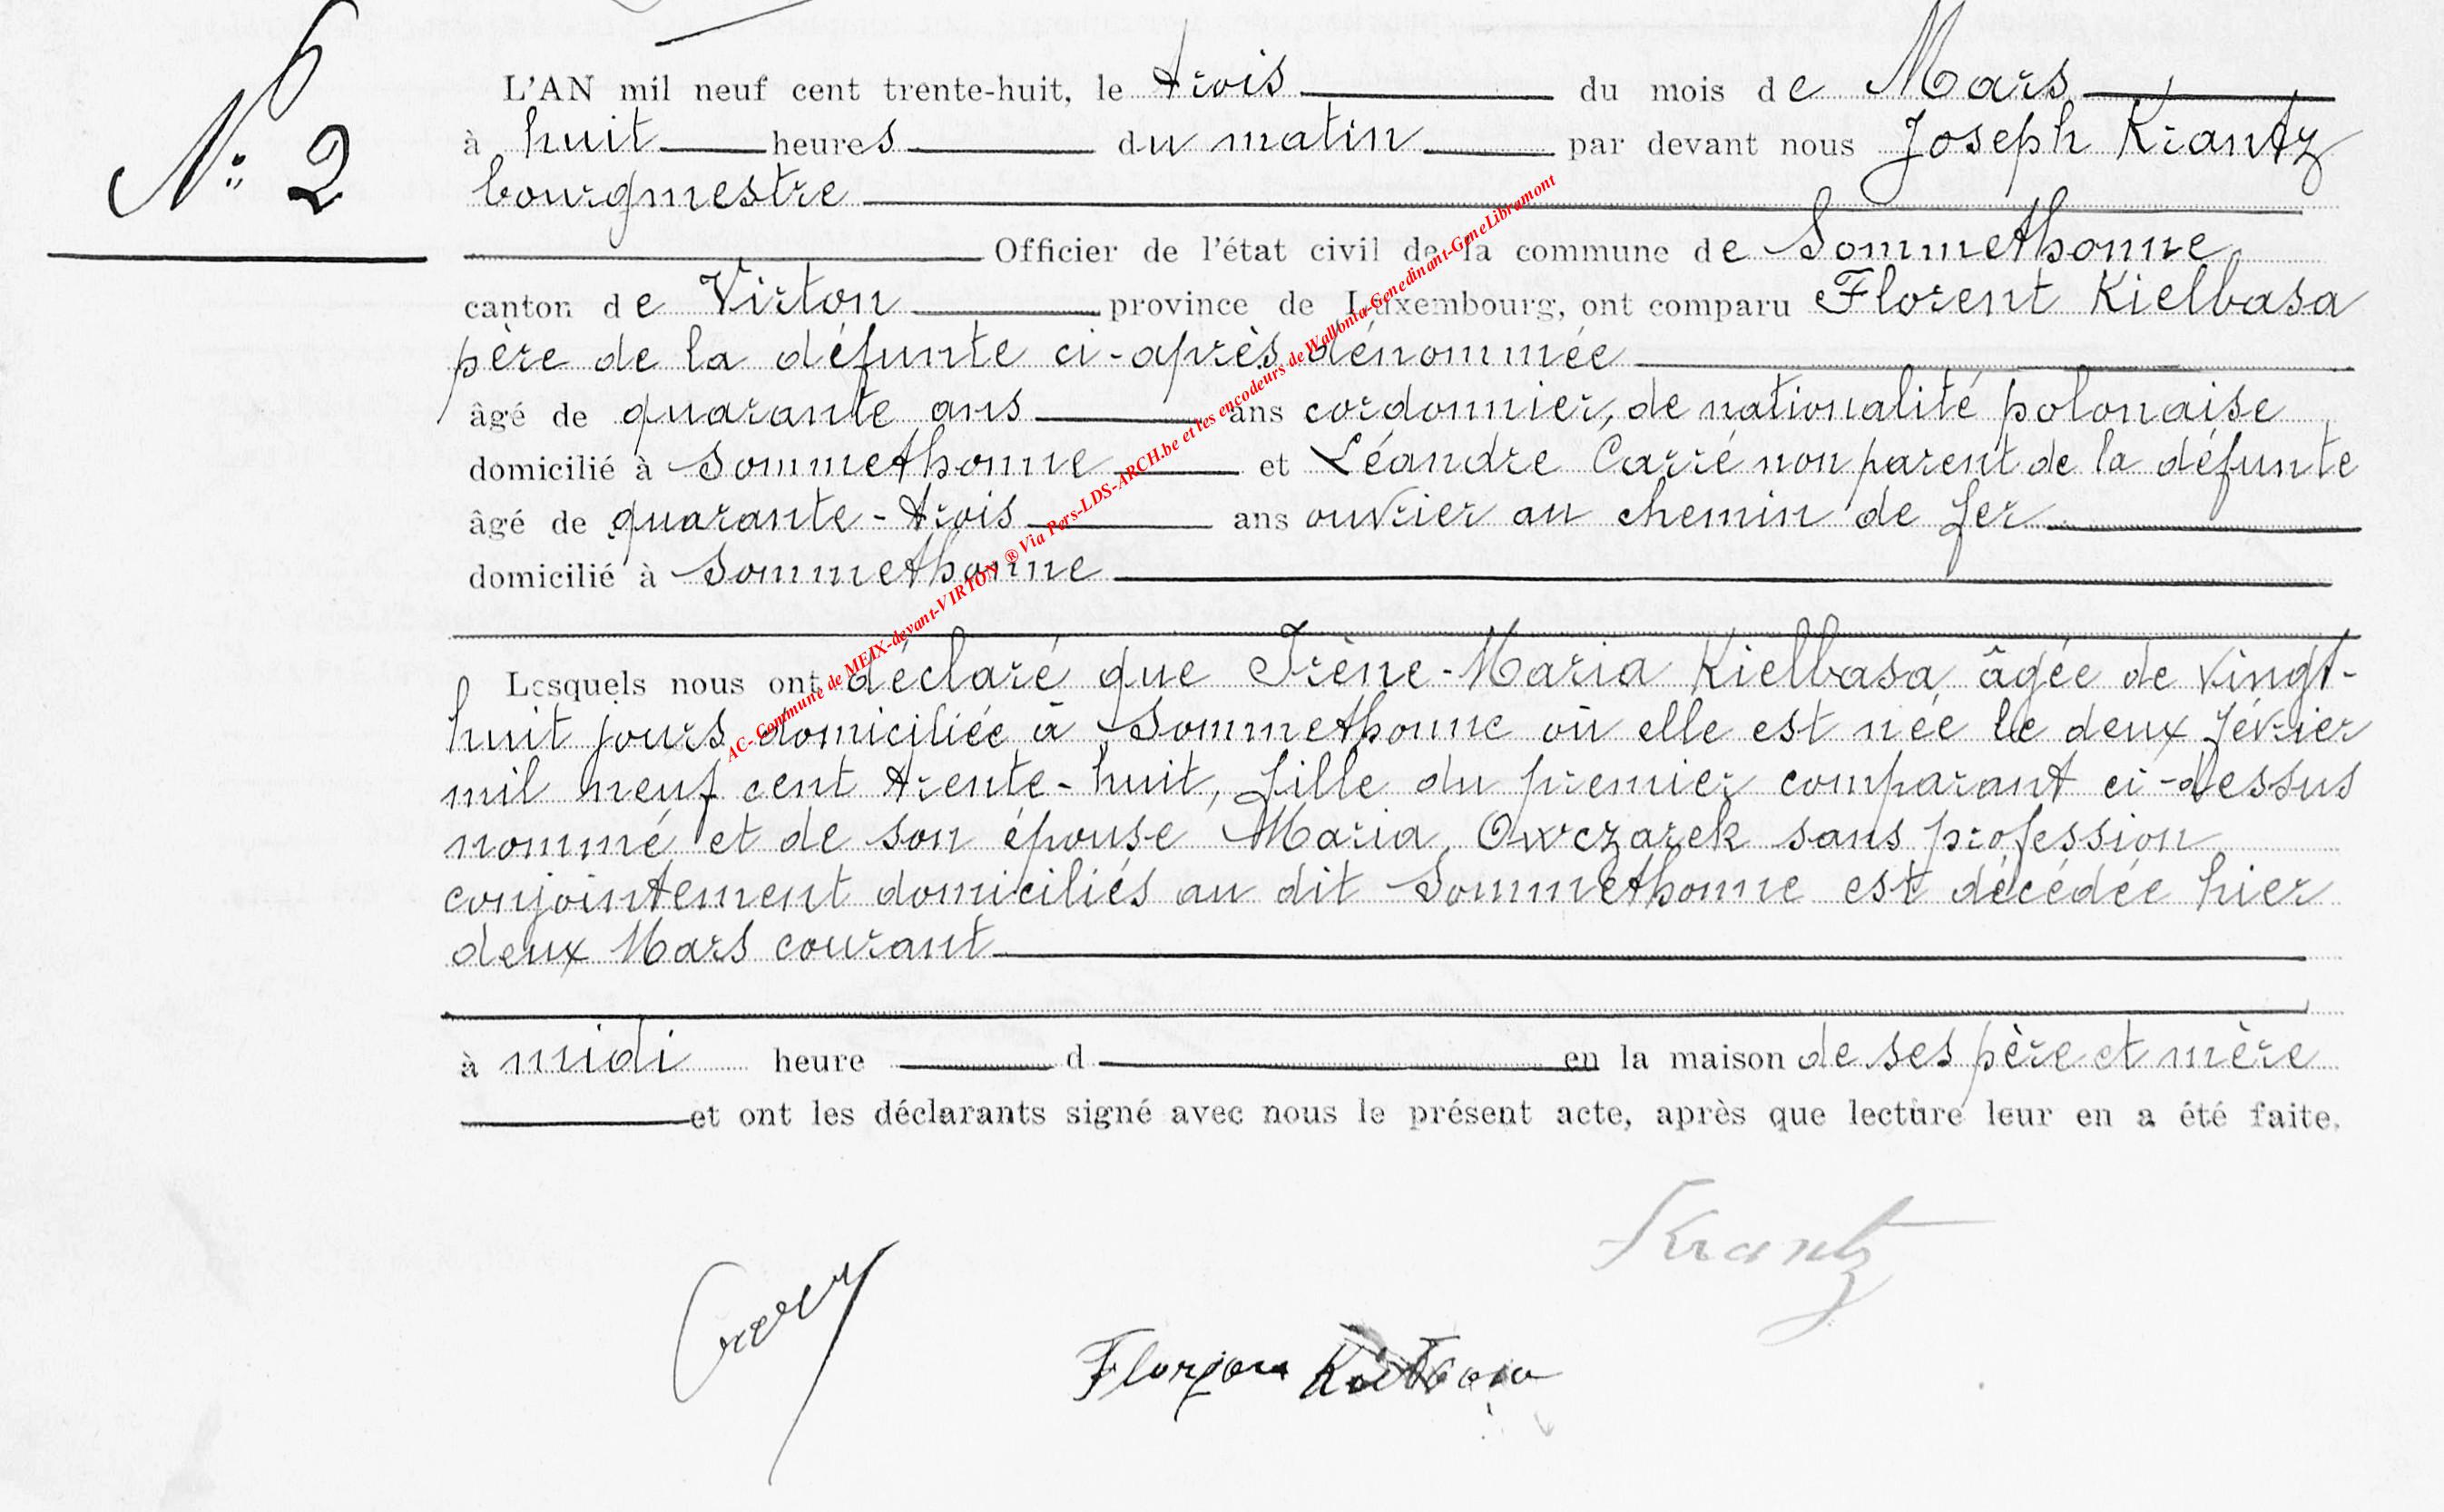 L'AN mil neuf cent trente-huit, le trois du mois de Mars
à huit heures du matin par devant nous Joseph Krantz
N° 2
bourgmestre
Officier de l'état civil de la commune de Sommethonne
canton de Virton province de Luxembourg, ont comparu Florent Kielbasa
père de la défunte ci-après dénommée
âgé de quarante ans ans cordonnier, de nationalité polonaise
domicilié à Sommethonne et Léandre Carré non parent de la défunte
âgé de quarante-trois ans ouvrier au chemin de fer
domicilié à Sommethonne
Lesquels nous ont déclaré que Irène-Maria Kielbasa âgée de vingt-
huit jours domiciliée à Sommethonne où elle est née le deux février
mil neuf cent trente-huit, fille du premier comparant ci-dessus
nommé et de son épouse Maria Owczarek sans profession
conjointement domiciliés au dit Sommethonne est décédée hier
deux Mars courant
à midi heure d en la maison de ses père et mère
et ont les déclarants signé avec nous le présent acte, après que lecture leur en a été faite.
AC-Commune de MEIX-devant-VIRTON ® Via Pers-LDS-ARCH.be et les encodeurs de Wallonia-Genedinant-GeneLibramont
Krantz
Florjan